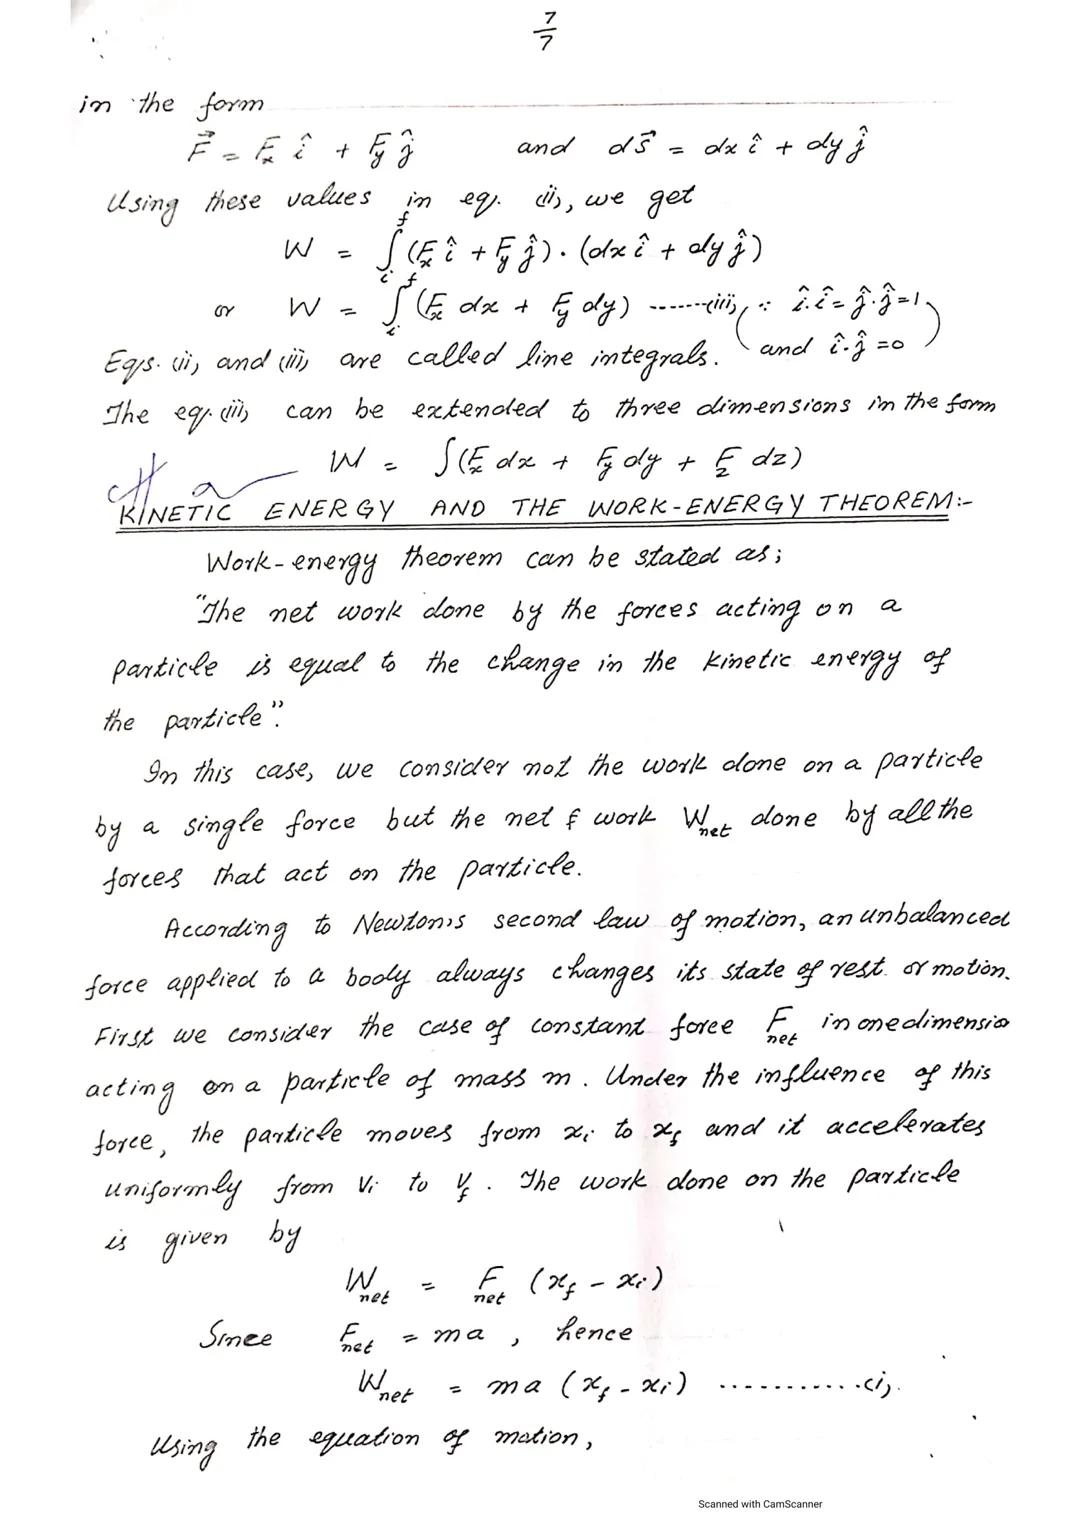 7/7
in the form
F⃗ = Fx î + Fy ĵ and ds⃗ = dx î + dy ĵ
Using these values in eq. (ii), we get
W = ∫ᵢᶠ (Fx î + Fy ĵ) · (dx î + dy ĵ)
or W = ∫ᵢᶠ (Fx dx + Fy dy) -------(iii), ∵ î.î = ĵ.ĵ = 1,
Eqs. (ii) and (iii) are called line integrals. and î.ĵ = 0
The eq. (iii) can be extended to three dimensions in the form
W = ∫(Fx dx + Fy dy + Fz dz)
KINETIC ENERGY AND THE WORK-ENERGY THEOREM:-
Work-energy theorem can be stated as;
"The net work done by the forces acting on a
particle is equal to the change in the kinetic energy of
the particle".
In this case, we consider not the work done on a particle
by a single force but the net f work Wnet done by all the
forces that act on the particle.
According to Newton's second law of motion, an unbalanced
force applied to a body always changes its state of rest or motion.
First we consider the case of constant force Fnet in one dimensio
acting on a particle of mass m. Under the influence of this
force, the particle moves from xi to xf and it accelerates
uniformly from vi to vf. The work done on the particle
is given by
Wnet = Fnet (xf - xi)
Since Fnet = ma, hence
Wnet = ma (xf - xi) ............(i).
Using the equation of motion,
Scanned with CamScanner